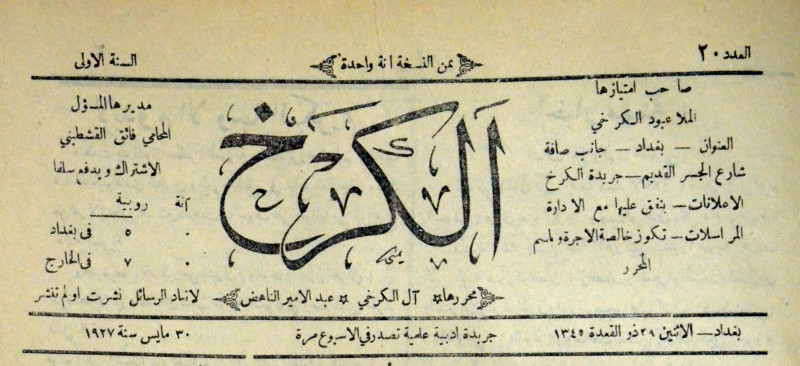 العدد ٢٠
ثمن النسخة آنة واحدة
السنة الاولى
صاحب امتيازها
الملا عبود الكرخي
العنوان — بغداد — جانب صافة
شارع الجسر القديم — جريدة الكرخ
الاعلانات — يتفق عليها مع الادارة
المراسلات — تكون خالصة الاجرة وباسم
المحرر
الكرخ
مديرها المسؤل
المحامي فائق القشطيني
الاشتراك ويدفع سلفا
آنة روبية
٠ ٥ في بغداد
٠ ٧ في الخارج
محررها آل الكرخي * عبد الامير الناهض
لاتعاد الرسائل نشرت او لم تنشر
بغداد — الاثنين ٢٨ ذو القعدة ١٣٤٥
جريدة ادبية علمية تصدر في الاسبوع مرة
٣٠ مايس سنة ١٩٢٧